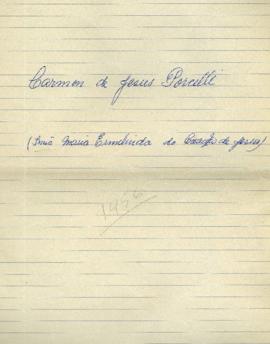 Carmen de Jesus Porcelli
(Irmã Maria Ermelinda do Coração de Jesus)
1956